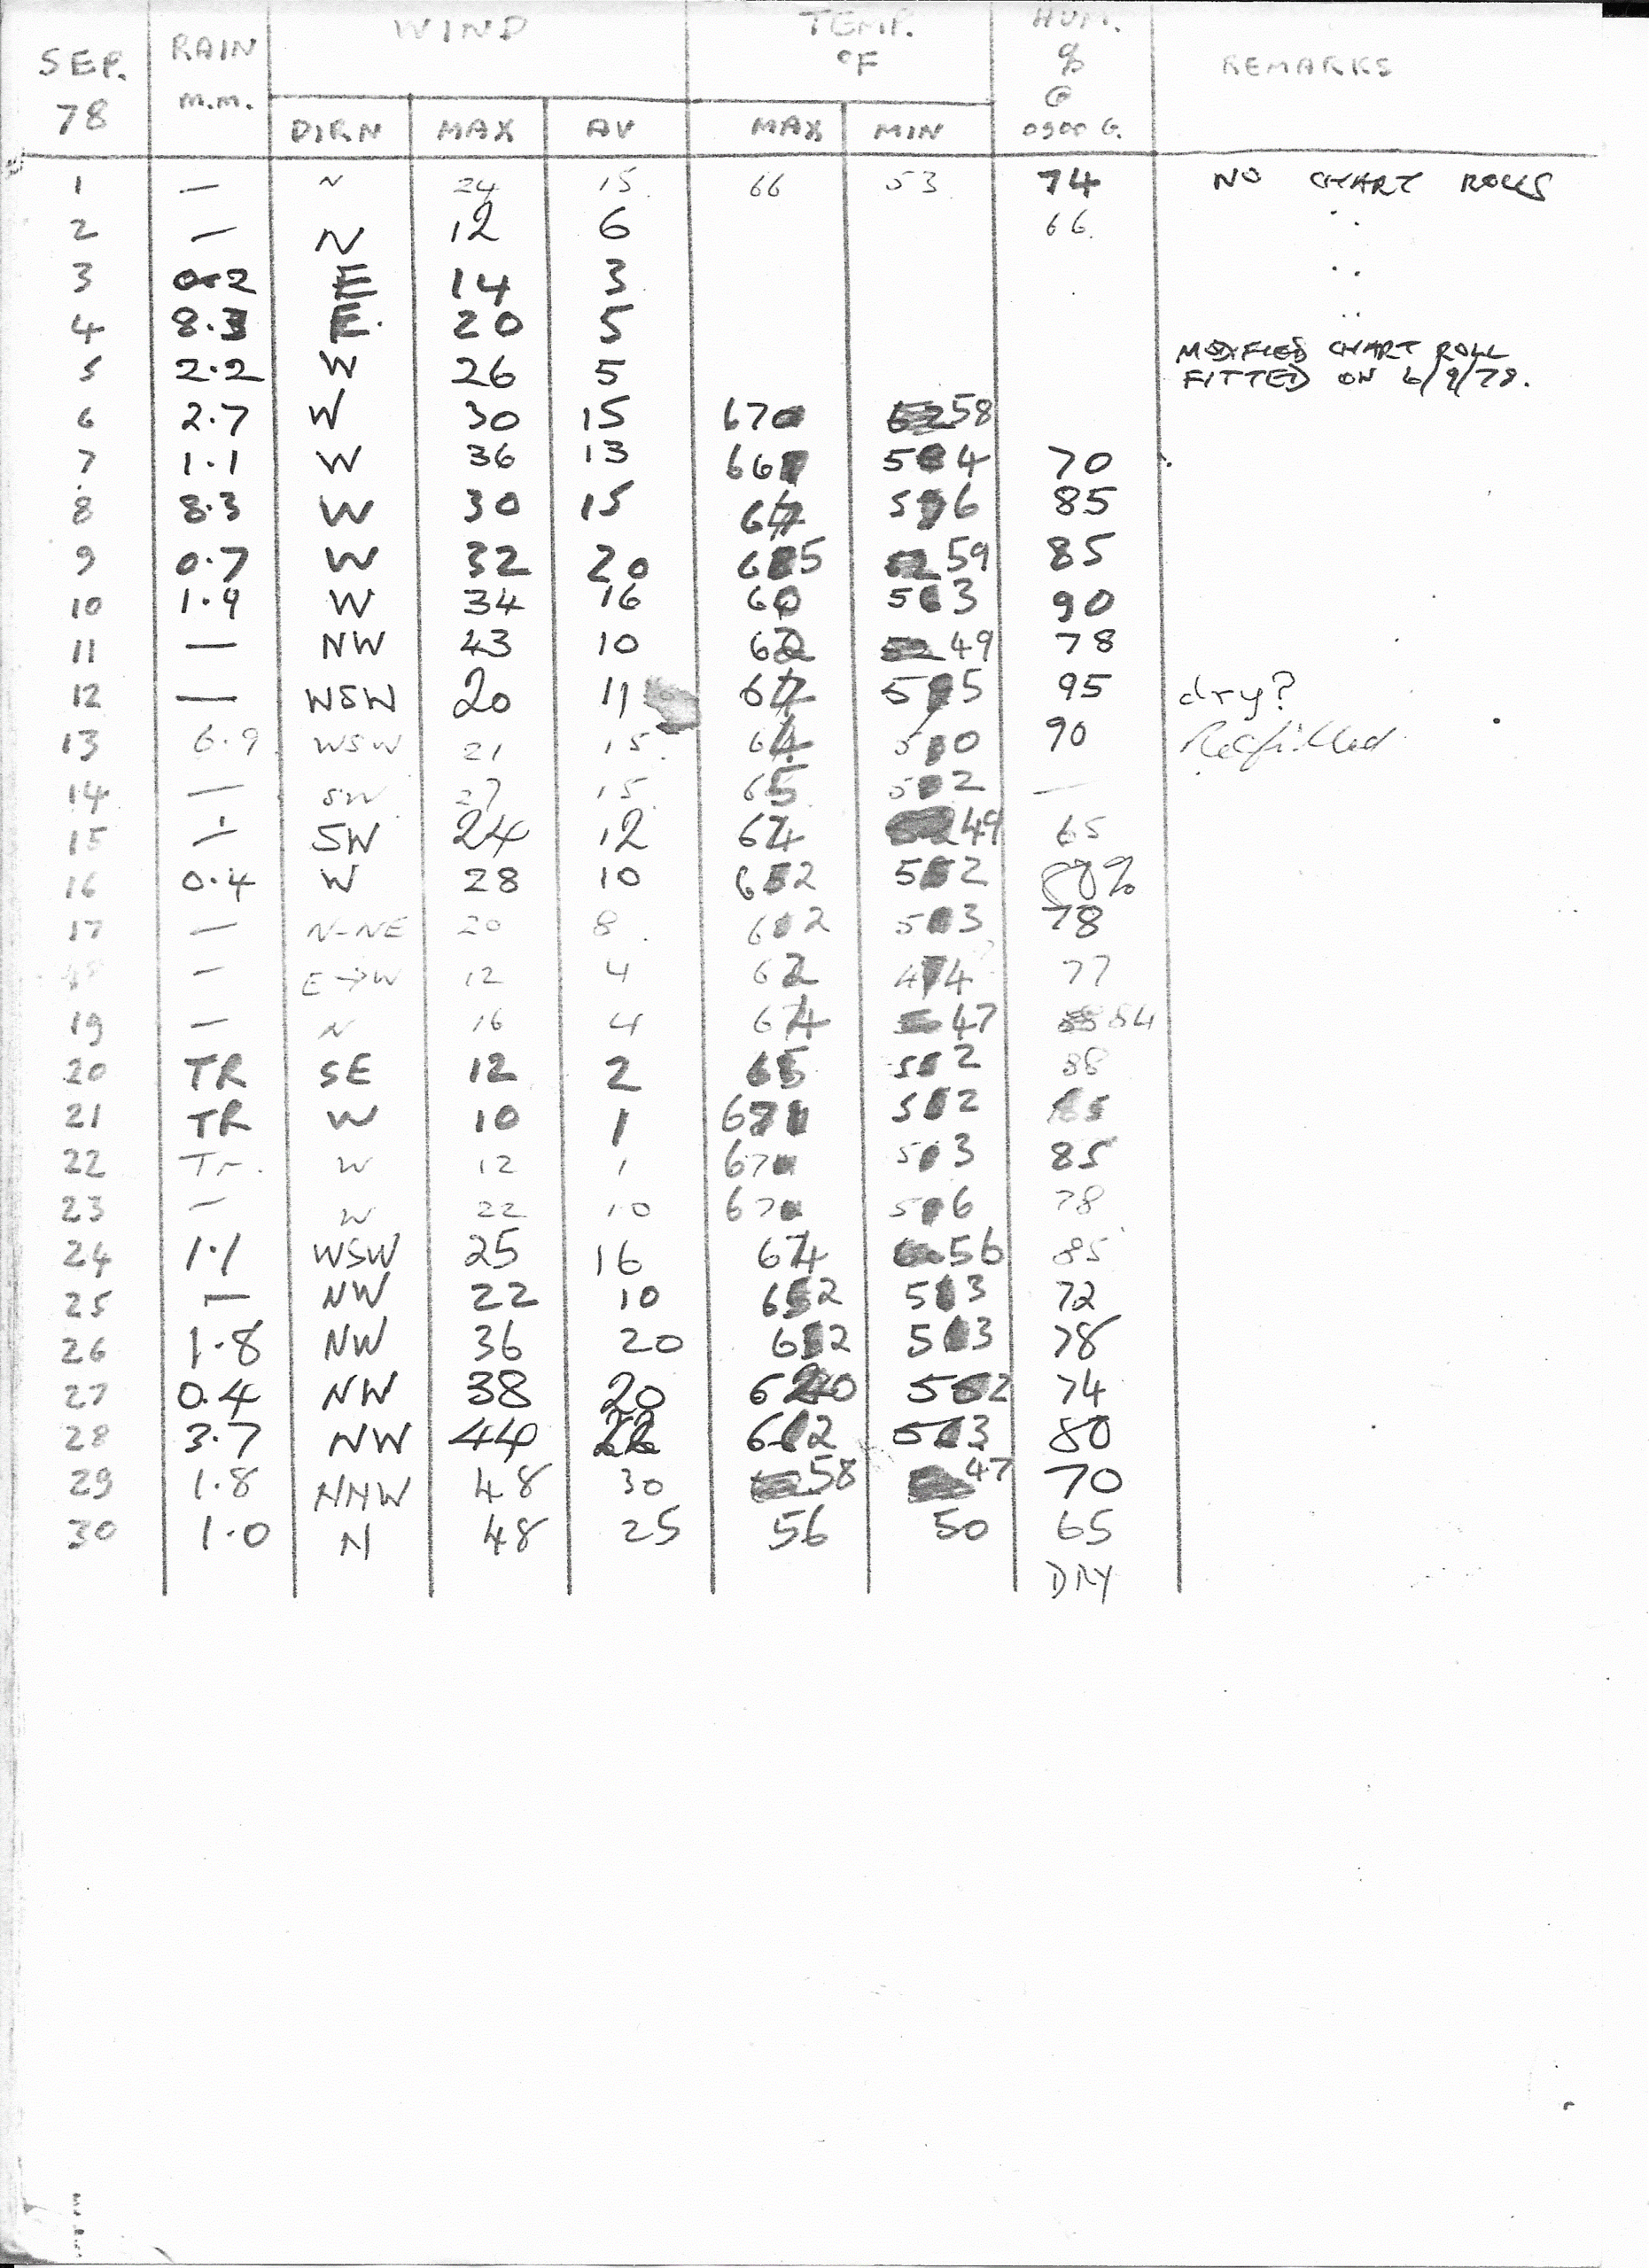 SEP. 78 RAIN M.M. WIND TEMP. °F HUM. % @ 0900 G. REMARKS
DIRN MAX AV MAX MIN
1 — N 24 15 66 53 74 NO CHART ROLLS
2 — N 12 6 66 ..
3 0.2 E 14 3 ..
4 8.3 E 20 5 ..
5 2.2 W 26 5 MODIFIED CHART ROLL
FITTED ON 6/9/78.
6 2.7 W 30 15 67 58
7 1.1 W 36 13 66 54 70
8 8.3 W 30 15 56 85
9 0.7 W 32 20 65 59 85
10 1.9 W 34 16 60 53 90
11 — NW 23 10 62 49 78
12 — WSW 20 11 55 95 dry?
13 6.9 WSW 21 15 64 50 90 Refilled
14 — SW 27 15 65 52 —
15 — SW 24 12 64 49 65
16 0.4 W 28 10 62 52 80%
17 — N-NE 20 8 62 53 78
— E→W 12 4 62 44 77
19 — N 16 4 64 47 84
20 TR SE 12 2 65 52 88
21 TR W 10 1 52 85
22 Tr. W 12 1 67 53 85
23 — W 22 10 67 56 78
24 1.1 WSW 25 16 64 56 85
25 — NW 22 10 62 53 72
26 1.8 NW 36 20 62 53 78
27 0.4 NW 38 20 60 52 74
28 3.7 NW 44 62 53 80
29 1.8 NNW 48 30 58 47 70
30 1.0 N 48 25 56 50 65
DRY